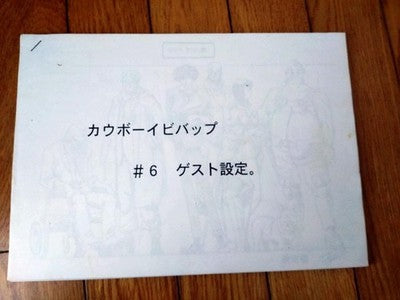 カウボーイビバップ
＃６　ゲスト設定。